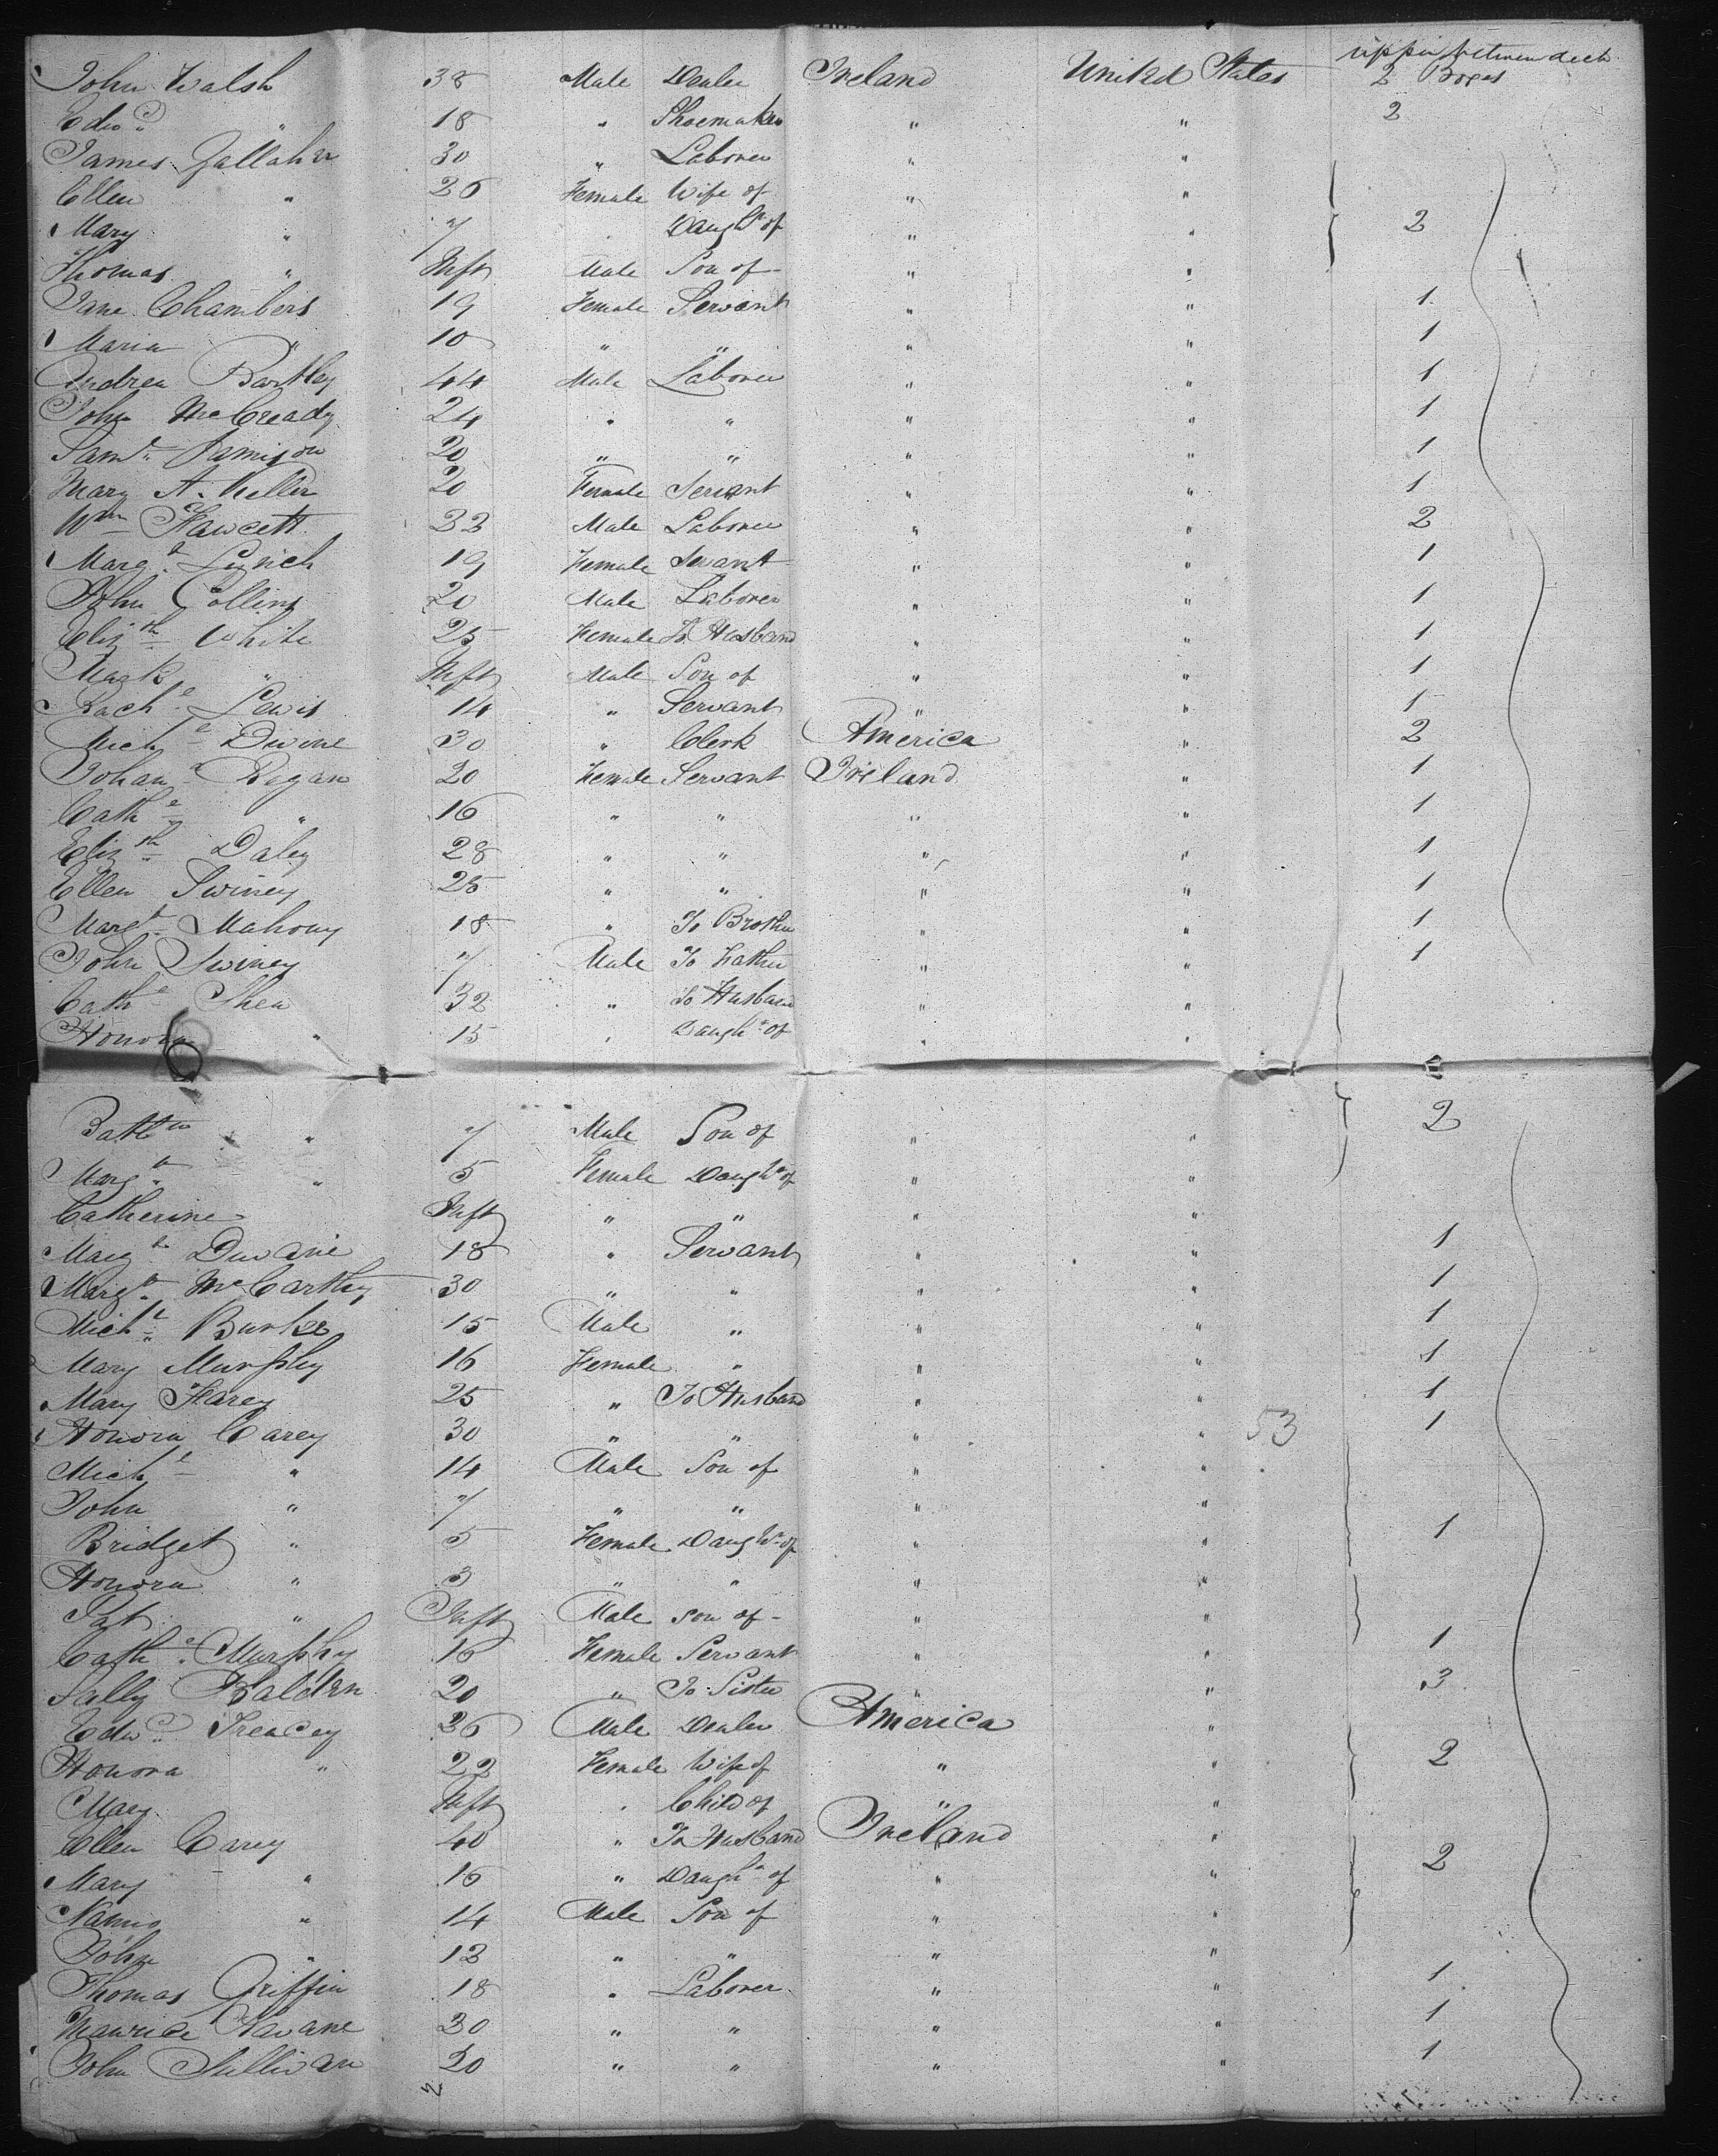 upper between deck
John Walsh 38 Male Dealer Ireland United States 2 Boxes
Edwd " 18 " Shoemaker " " 2
James Gallaher 30 " Laborer " "
Ellen " 26 Female Wife of " "
Mary " 7 " Daughr of " " 2
Thomas " Inft Male Son of " "
Jane Chambers 19 Female Servant " " 1
Maria " 10 " " " " 1
Andrew Bartley 44 Male Laborer " " 1
John McCready 24 " " " " 1
Saml Jamison 20 " " " " 1
Mary A. Keller 20 Female Servant " " 1
Wm Fawcett 22 Male Laborer " " 2
Margt Lynch 19 Female Servant " " 1
John Collins 20 Male Laborer " " 1
Elizth White 25 Female To Husband " " 1
Mark " Inft Male Son of " " 1
Rachl Lewis 14 " Servant " " 1
Michl Divine 30 " Clerk America " 2
Johana Regan 20 Female Servant Ireland " 1
Cathe " 16 " " " " 1
Elizth Daley 28 " " " " 1
Ellen Swiney 25 " " " " 1
Margt Mahony 18 " To Brother " " 1
John Swiney 7 Male To Father " " 1
Cathe Shea 32 " To Husband " "
Honora " 15 " Daughr of " "
Battw " 7 Male Son of " " 2
Margt " 5 Female Daughr of " "
Catherine Inft " " " "
Margt Duvane 18 " Servant " " 1
Margt McCarthy 30 " " " " 1
Michl Burke 15 Male " " " 1
Mary Murphy 16 Female " " " 1
Mary Farey 25 " To Husband " " 1
Honora Carey 30 " " " " 53 1
Michl " 14 Male Son of " "
John " 7 " " " "
Bridget " 5 Female Daughr of " " 1
Honora " 3 " " " "
Pat " Inft Male son of " "
Cathe Murphy 16 Female Servant " " 1
Sally Baldwn 20 " To Sister " " 3
Edwd Treacey 26 Male Dealer America "
Honora " 22 Female Wife of " " 2
Mary Inft " Child of " "
Ellen Carey 40 " To Husband Ireland "
Mary " 16 " Daughr of " " 2
" 14 Male Son of " "
John " 12 " " " "
Thomas Griffin 18 " Laborer " " 1
Maurice Kavane 30 " " " " 1
John Sullivan 20 " " " " 1